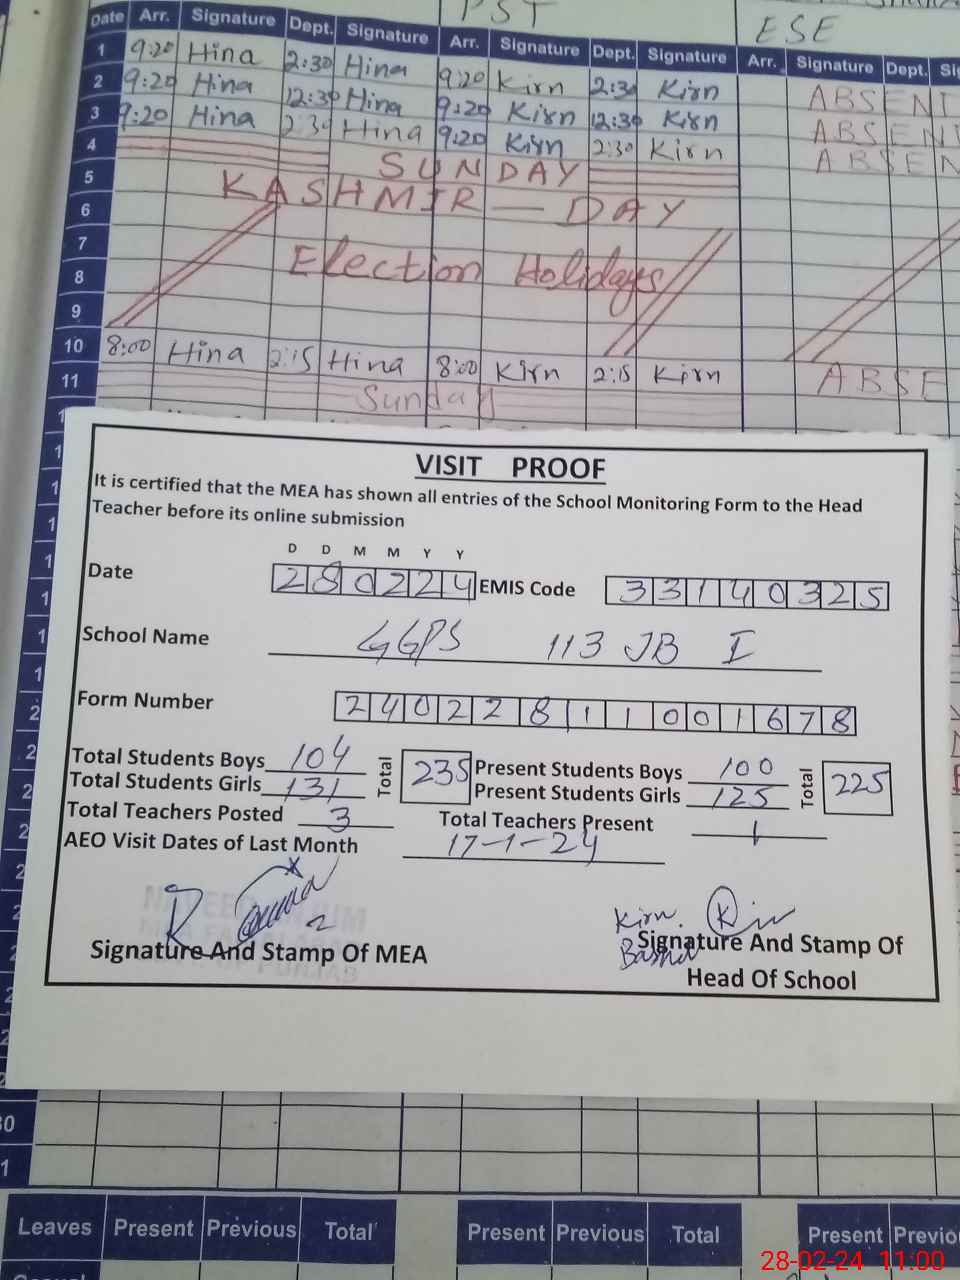 PST
ESE
Date Arr. Signature Dept. Signature Arr. Signature Dept. Signature Arr. Signature Dept.
1 9:20 Hina 2:30 Hina 9:20 Kirn 2:30 Kirn ABSENT
2 9:20 Hina 12:30 Hina 9:20 Kirn 12:30 Kirn ABSENT
3 9:20 Hina 2:30 Hina 9:20 Kirn 2:30 Kirn ABSEN
4 SUNDAY
5 KASHMIR — DAY
6
7 Election Holidays
8
9
10 8:00 Hina 2:15 Hina 8:00 Kirn 2:15 Kirn ABSE
11 Sunday
VISIT PROOF
It is certified that the MEA has shown all entries of the School Monitoring Form to the Head
Teacher before its online submission
D D M M Y Y
Date 280224 EMIS Code 33140325
School Name GGPS 113 JB I
Form Number 24022811001678
Total Students Boys 104 Total 235 Present Students Boys 100 Total 225
Total Students Girls 131 Present Students Girls 125
Total Teachers Posted 3 Total Teachers Present 1
AEO Visit Dates of Last Month 17-1-24
Kirn
Bashir
Signature And Stamp Of MEA Signature And Stamp Of
Head Of School
30
Leaves Present Previous Total Present Previous Total Present Previo
28-02-24 11:00